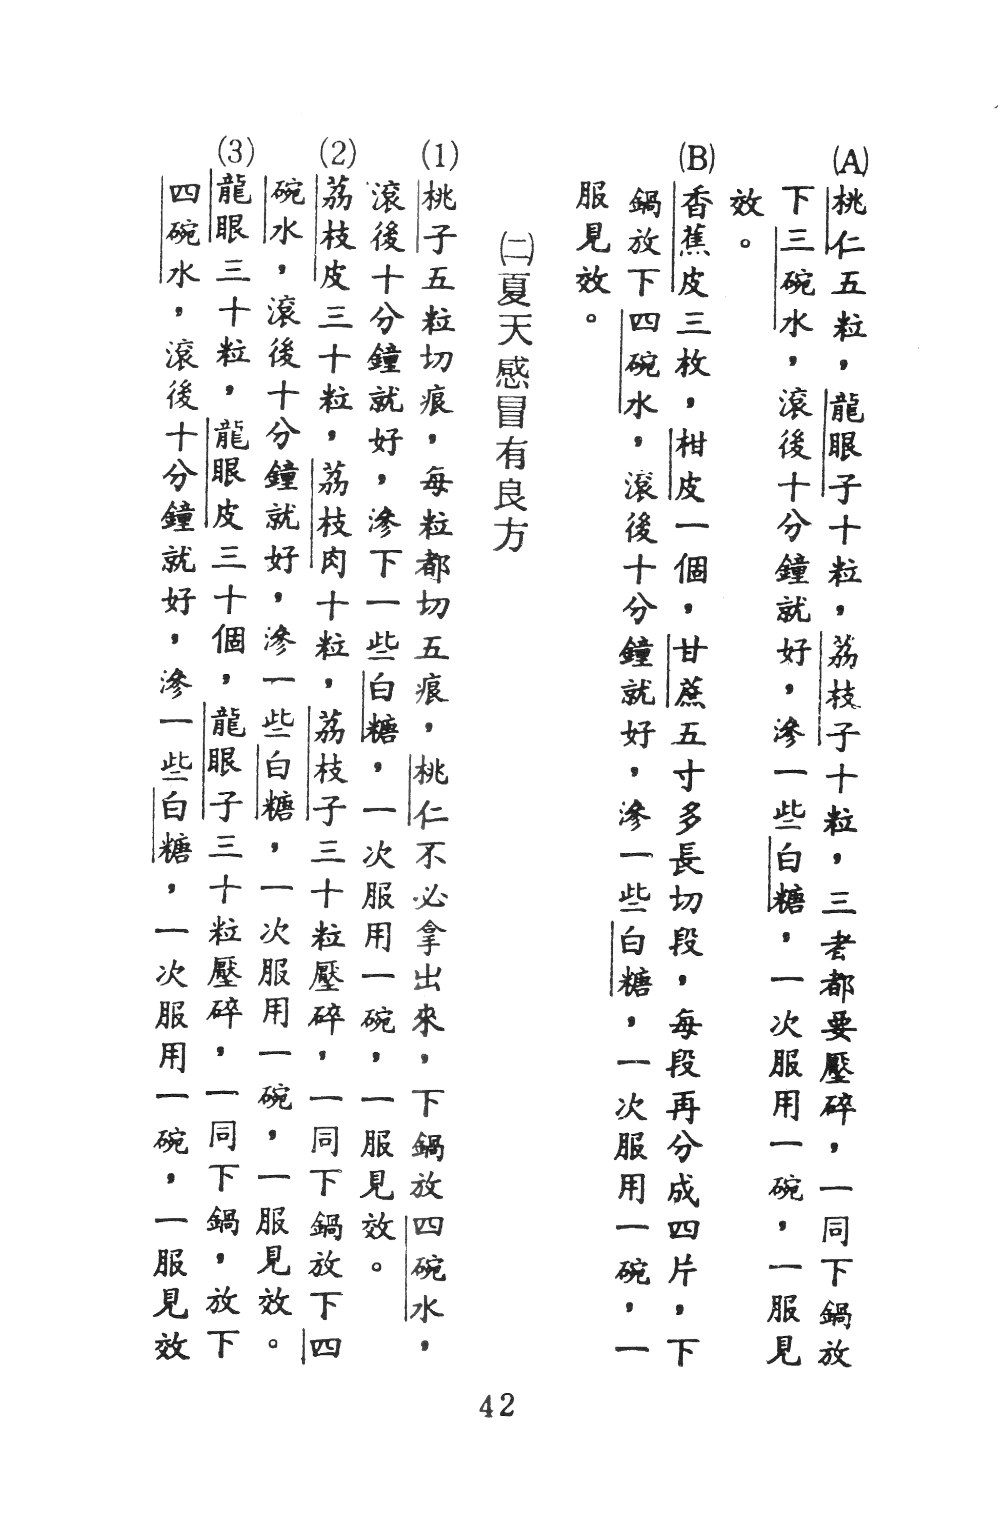 (A)桃仁五粒，龍眼子十粒，荔枝子十粒，三者都要壓碎，一同下鍋放
下三碗水，滾後十分鐘就好，滲一些白糖，一次服用一碗，一服見
效。
(B)香蕉皮三枚，柑皮一個，甘蔗五寸多長切段，每段再分成四片，下
鍋放下四碗水，滾後十分鐘就好，滲一些白糖，一次服用一碗，一
服見效。
㈡夏天感冒有良方
(1)桃子五粒切痕，每粒都切五痕，桃仁不必拿出來，下鍋放四碗水，
滾後十分鐘就好，滲下一些白糖，一次服用一碗，一服見效。
(2)荔枝皮三十粒，荔枝肉十粒，荔枝子三十粒壓碎，一同下鍋放下四
碗水，滾後十分鐘就好，滲一些白糖，一次服用一碗，一服見效。
(3)龍眼三十粒，龍眼皮三十個，龍眼子三十粒壓碎，一同下鍋，放下
四碗水，滾後十分鐘就好，滲一些白糖，一次服用一碗，一服見效
42